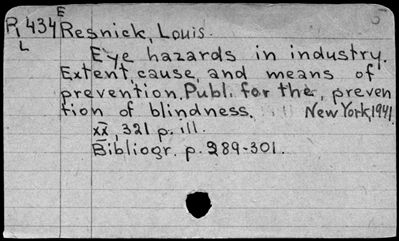 E
R, 434 Resnick, Louis.
L
Eye hazards in industry.
Extent, cause, and means of
prevention. Publ. for the, preven
tion of blindness. New York, 1941.
xx, 321 p. ill.
Bibliogr. p. 289-301.